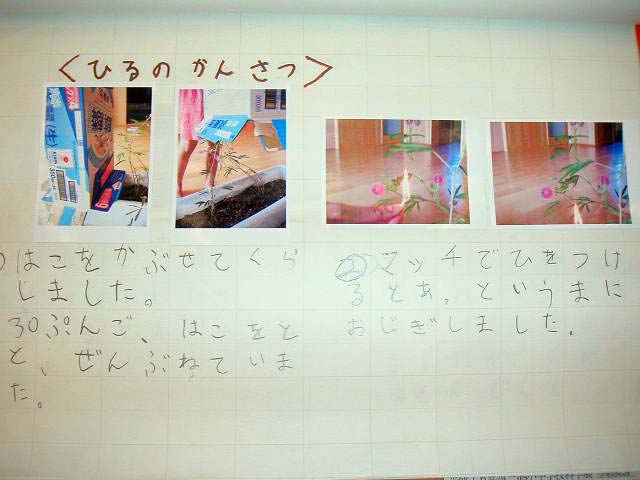 <ひるのかんさつ>
はこをかぶせてくら
じました。
30ぷんご、はこをと
と、ぜんぶねていま
た。
②マッチでひをつけ
るとあ。というまに
おじぎしました。